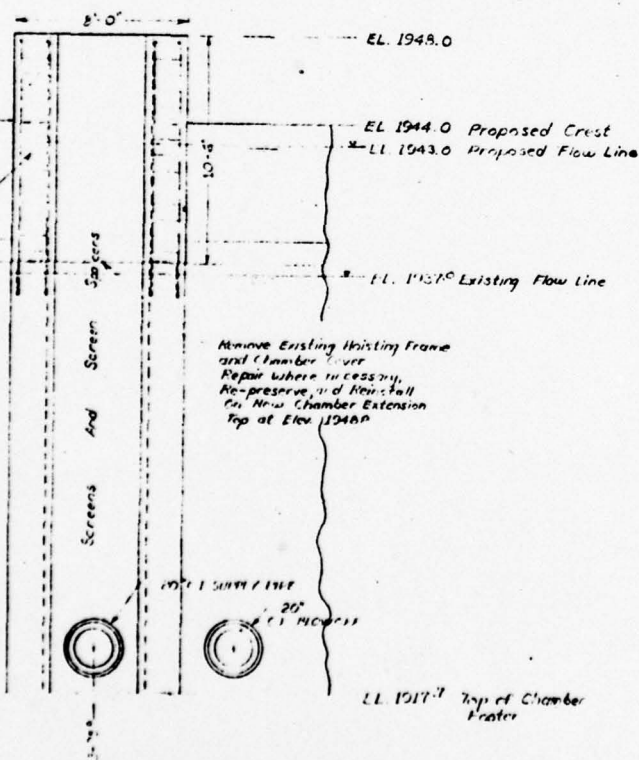 8'-0"
EL. 1948.0
EL. 1944.0 Proposed Crest
EL. 1943.0 Proposed Flow Line
EL. 1937.0 Existing Flow Line
Screens And Screen Spacers
Remove Existing Hoisting Frame
and Chamber Cover
Repair where necessary,
Re-preserve, and Reinstall
On New Chamber Extension
Top at Elev. 1948.0
SUPPLY PIPE
20"
C.I. BLOWOFF
EL. 1917.7 Top of Chamber
Footer